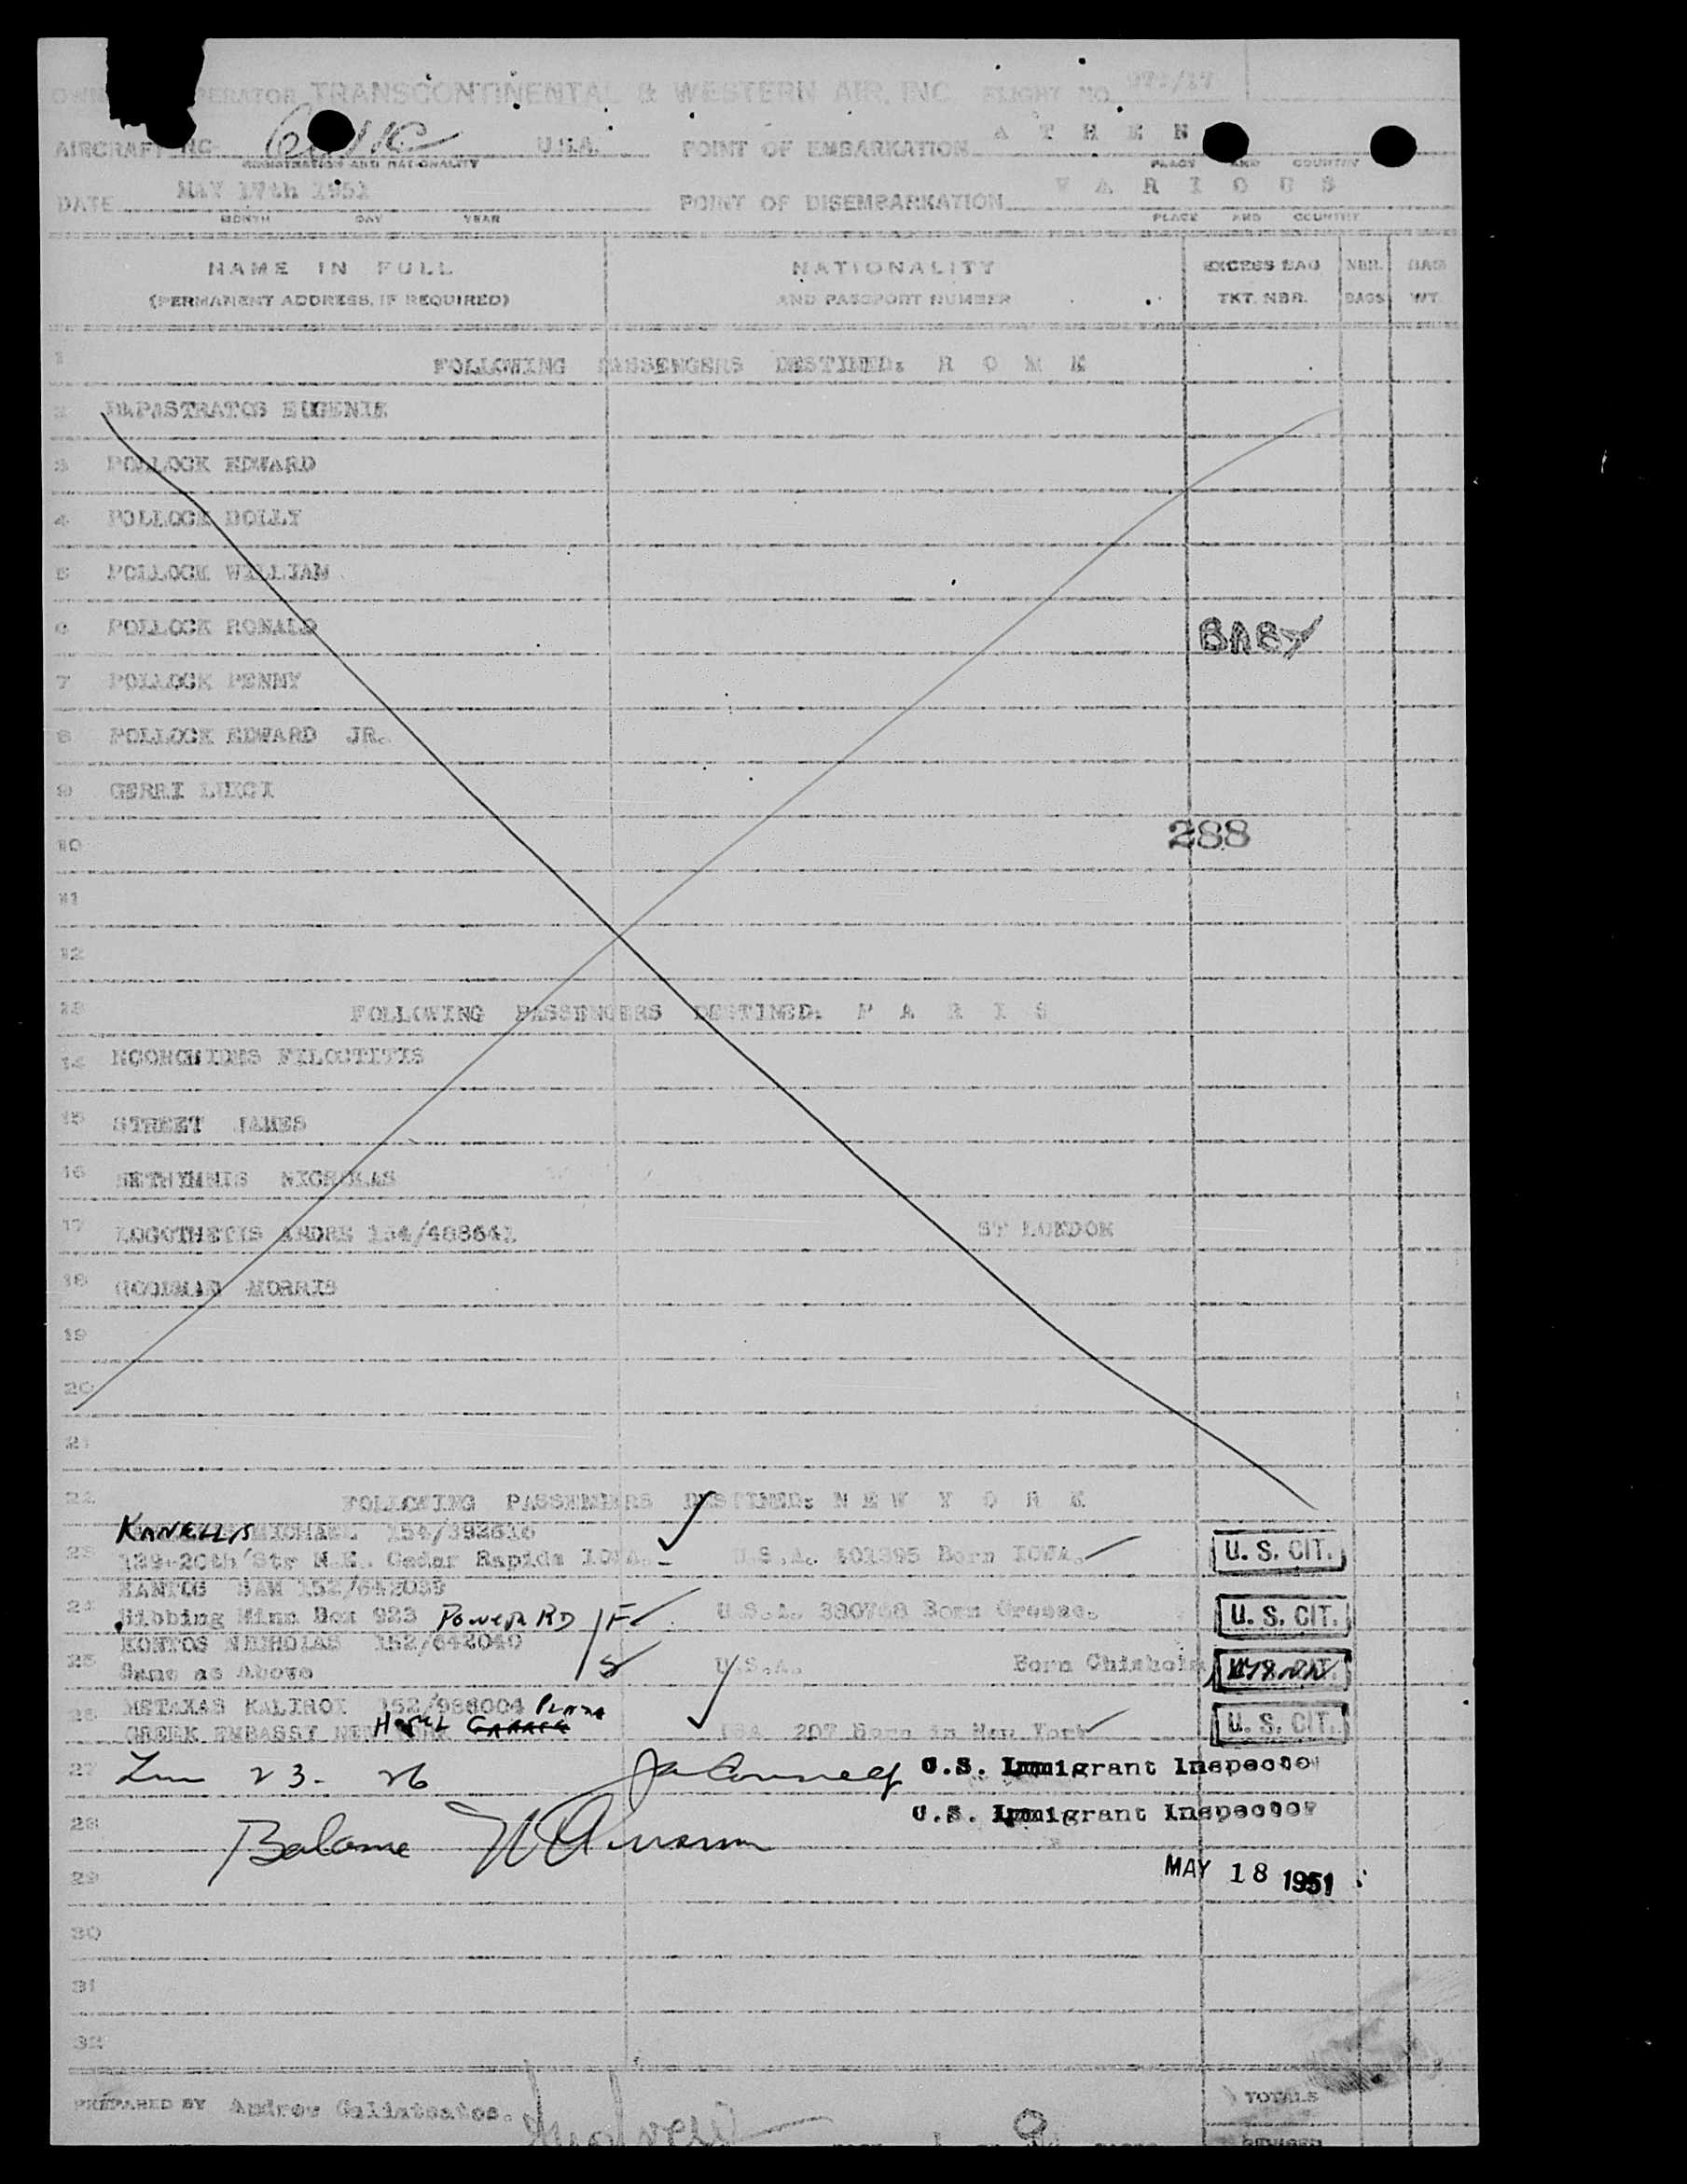 OPERATOR TRANSCONTINENTAL & WESTERN AIR, INC. FLIGHT NO.
AIRCRAFT NC U.S.A. POINT OF EMBARKATION A T H E N
REGISTRATION AND NATIONALITY PLACE AND COUNTRY
DATE MAY 17th 1951 POINT OF DISEMBARKATION V A R I O U S
MONTH DAY YEAR PLACE AND COUNTRY
NAME IN FULL NATIONALITY EXCESS BAG NBR. BAG
(PERMANENT ADDRESS, IF REQUIRED) AND PASSPORT NUMBER TKT. NBR. BAGS WT.
1 FOLLOWING PASSENGERS DESTINED: R O M E
2 PAPASTRATOS EUGENIE
3 POLLOCK EDWARD
4 POLLOCK DOLLY
5 POLLOCK WILLIAM
6 POLLOCK RONALD BABY
7 POLLOCK PENNY
8 POLLOCK EDWARD JR.
9 GERRI LUIGI
10 288
11
12
13 FOLLOWING PASSENGERS DESTINED: P A R I S
14 FILOCTITIS
15 STREET JAMES
16 NICHOLAS
17 LOGOTHETIS ANDRE 154/488641 ST LONDON
18 GOODMAN MORRIS
19
20
21
22 FOLLOWING PASSENGERS DESTINED: N E W Y O R K
KANELLIS MICHAEL 154/392616
23 129-20th Str N.E. Cedar Rapids IOWA. U.S.A. 401395 Born IOWA. U. S. CIT.
KANTOS SAM 152/642039
24 Hibbing Minn Box 923 POWER RD 1F U.S.A. 380768 Born Greece. U. S. CIT.
KONTOS NICHOLAS 152/642040
25 Same as Above U.S.A. Born Chisholm
26 METAXAS KALIROI 152/988004 PLAZA
GREEK EMBASSY NEW HOTEL USA 207 Born in New York U. S. CIT.
27 23 - 26 U.S. Immigrant Inspector
28 U.S. Immigrant Inspector
29 MAY 18 1951
30
31
32
PREPARED BY Andrew Galiatsatos. TOTALS